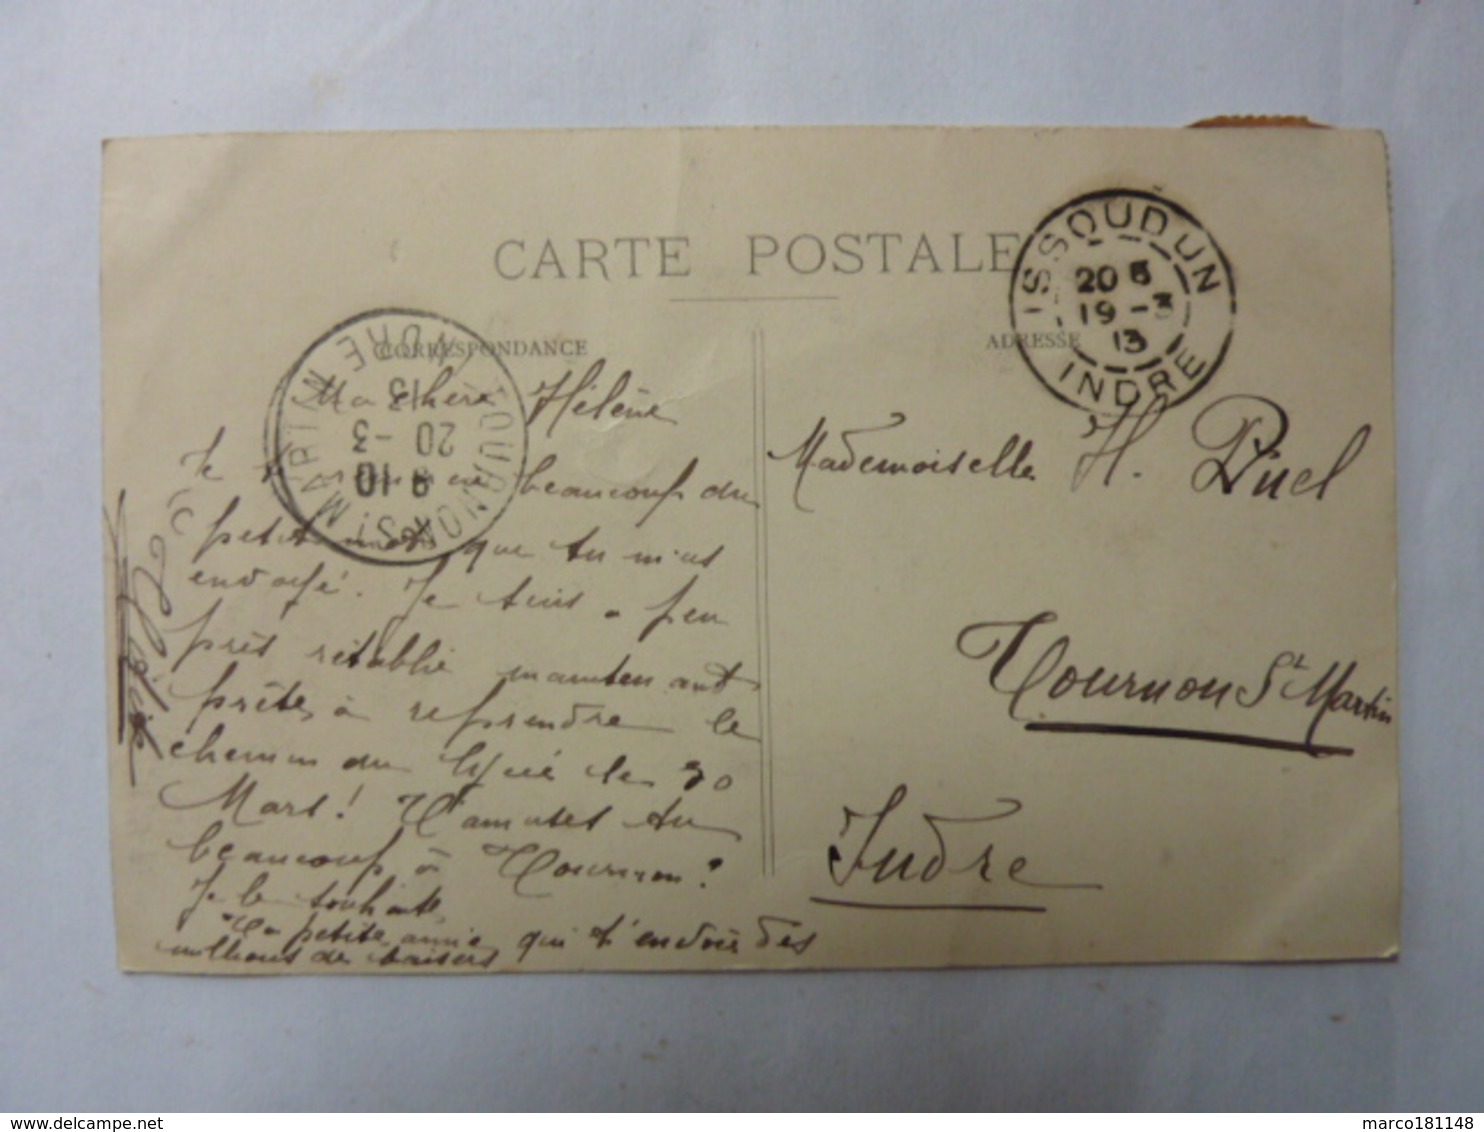 CARTE POSTALE
CORRESPONDANCE
ADRESSE
ISSOUDUN
20
19 - 3
13
INDRE
TOURNON ST MARTIN
INDRE
9 10
20 - 3
13
Ma chère Hélène
Je beaucoup du
petit mot que tu m'as
envoyé. Je suis a peu
près rétablie maintenant
prête à reprendre le
chemin du lycée le 30
Mars! T'amuses tu
beaucoup à Tournon?
Je le souhaite
Ta petite amie qui t'envoie des
millions de baisers
Mademoiselle H.
Tournon St Martin
Indre
marco181148